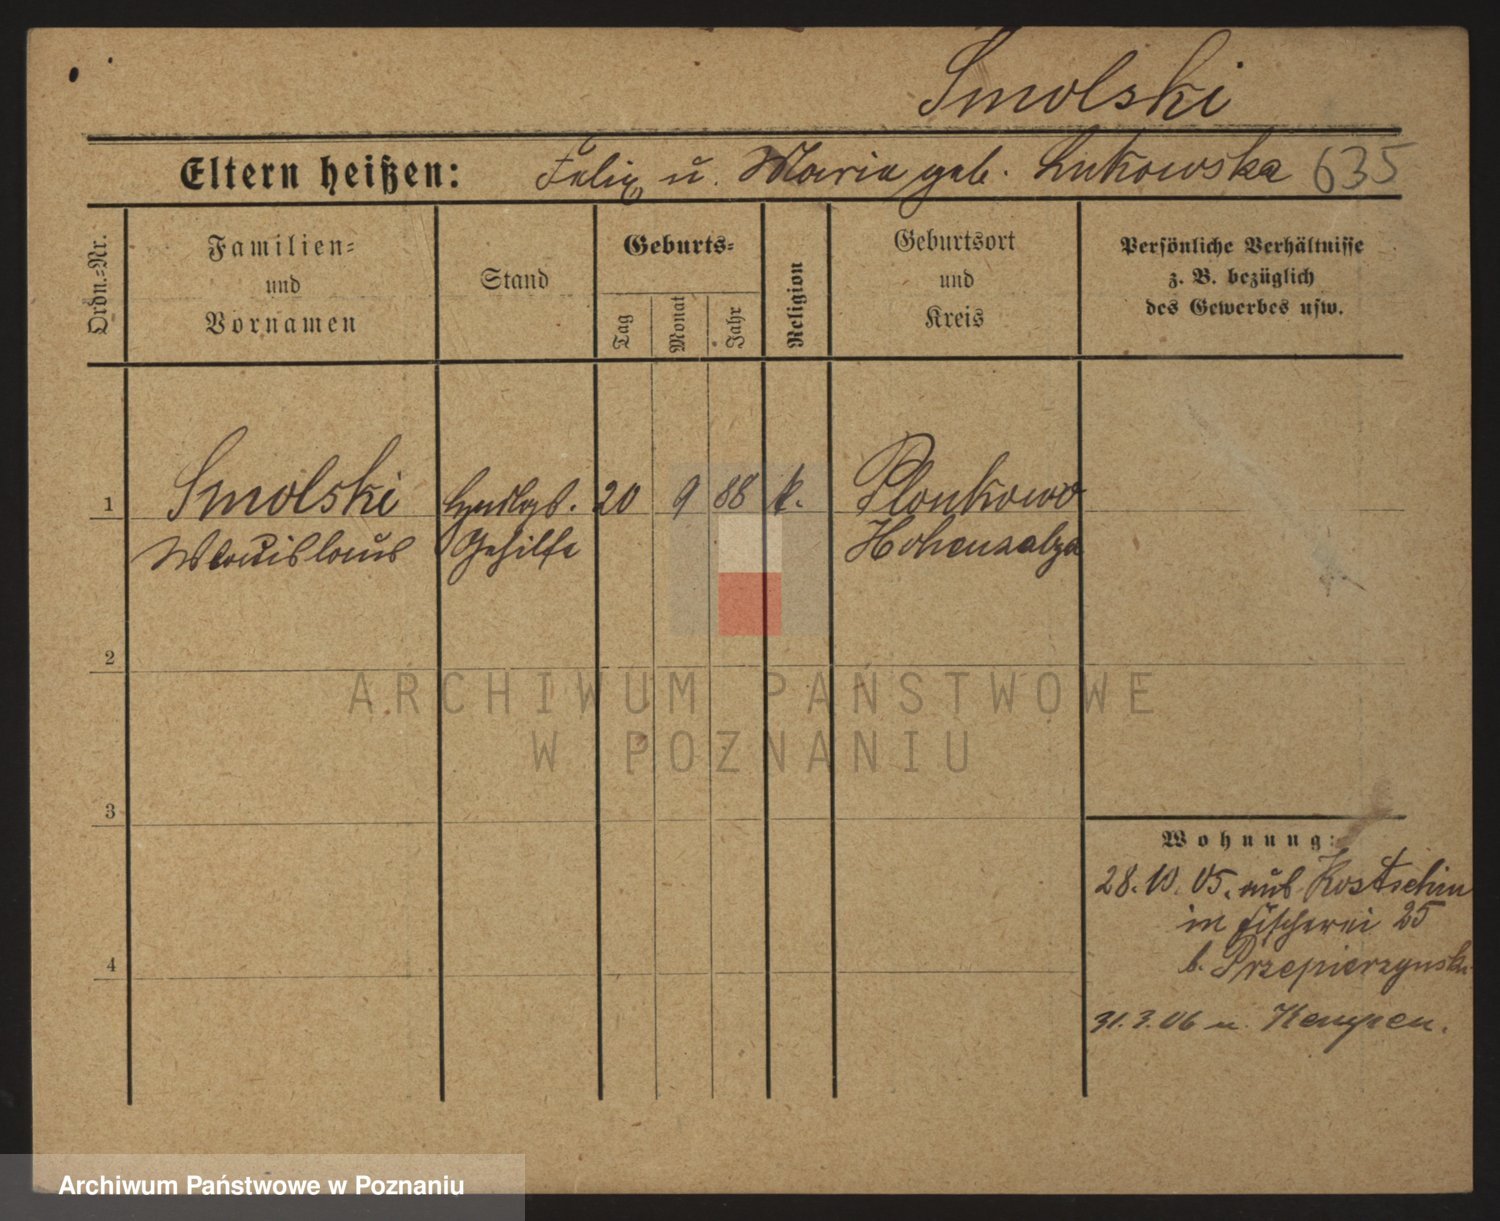 Smolski
Eltern heißen: Felix u. Maria geb. Lukowska 635
Ordn.-Nr.
Familien-
und
Vornamen
Stand
Geburts-
Tag
Monat
Jahr
Religion
Geburtsort
und
Kreis
Persönliche Verhältnisse
z. B. bezüglich
des Gewerbes usw.
1 Smolski 20 9 88 k. Plonkowo
Gehilfe Hohensalza
2
3
4
Wohnung:
28. 10. 05. aus Kostschin
in Fischerei 25
b. Przepierzynski
31.3.06 n. Kempen.
ARCHIWUM PAŃSTWOWE
W POZNANIU
Archiwum Państwowe w Poznaniu